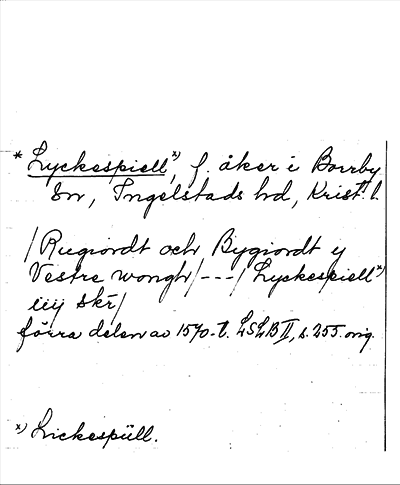 * Lyckespiell x), f. åker i Borrby
sn, Ingelstads hd, Krist. l.
/Rugiordt och Bygiordt ij
Vestre wongh/---/Lyckespiell x)
iiij skr/
förra delen av 1570-t. LSLB II, s. 255. orig.
x) Lickespüll.